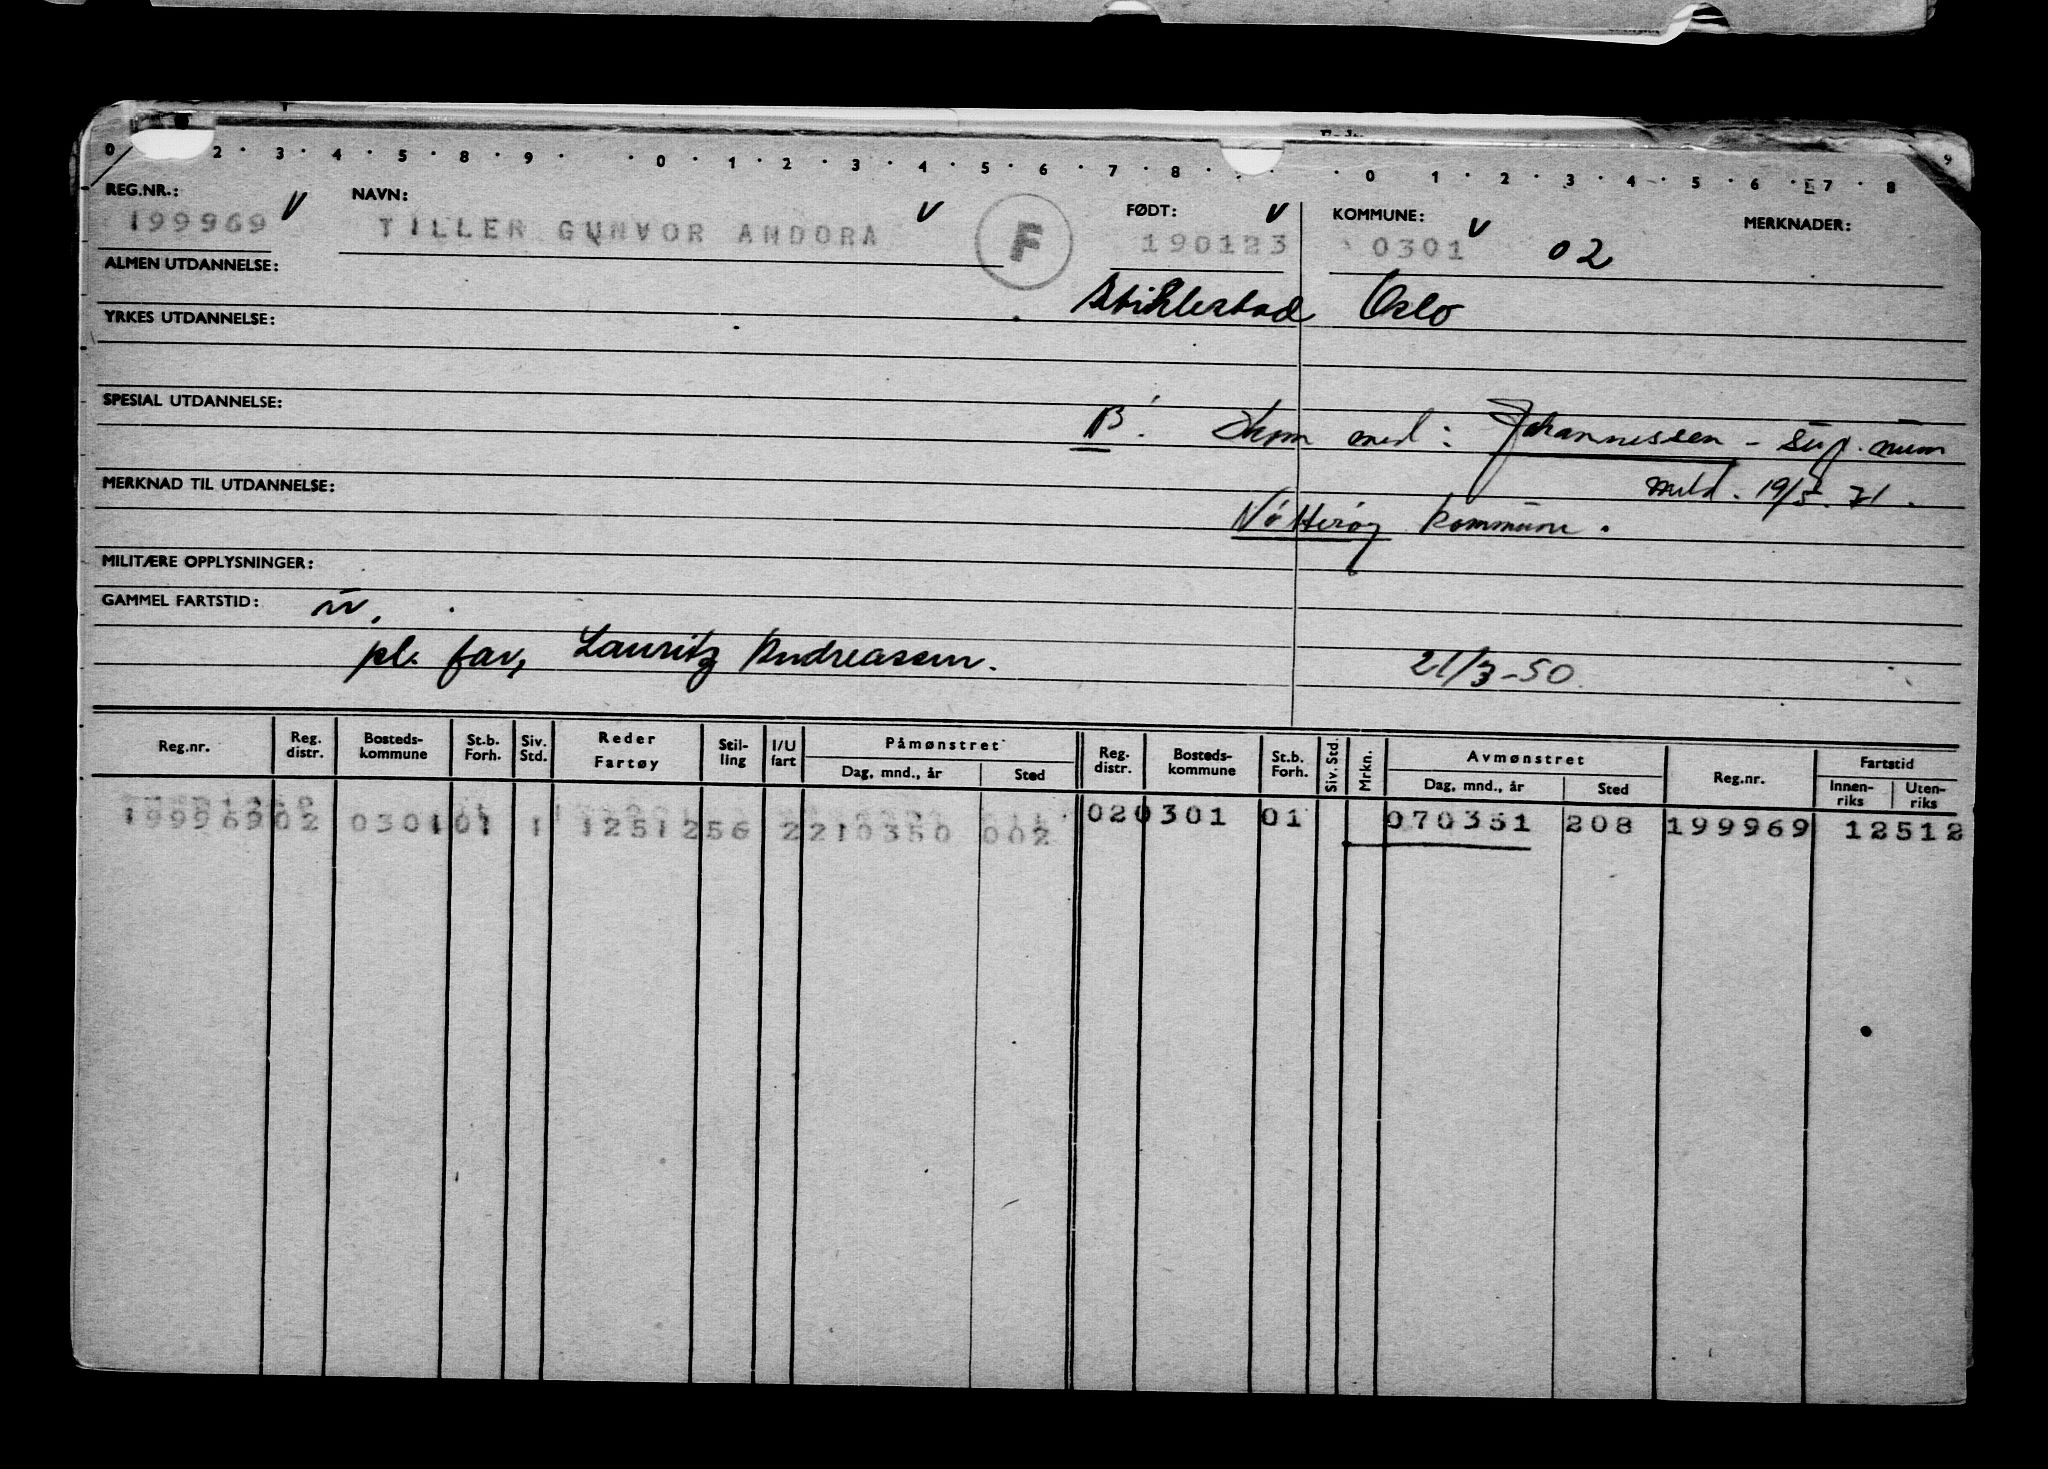 0 2 · 3 · 4 · 5 · 8 · 9 · 0 · 1 · 2 · 3 · 4 · 5 · 6 · 7 · 8 · · 0 · 1 · 2 · 3 · 4 · 5 · 6 · 7 · 8 9
REG.NR.: V NAVN: V FØDT: V KOMMUNE: V MERKNADER:
199969 TILLER GUNVOR ANDORA F 190123 0301 02
ALMEN UTDANNELSE:
Stiklestad Oslo
YRKES UTDANNELSE:
SPESIAL UTDANNELSE:
B. med: Johannessen - sup. num
MERKNAD TIL UTDANNELSE: meld. 19/5.71.
Nøtterøy kommune.
MILITÆRE OPPLYSNINGER:
GAMMEL FARTSTID:
pl. far, Lauritz Andreassen. 21/3-50.
Reg.nr. Reg. distr. Bosteds-kommune St.b. Forh. Siv. Std. Reder Fartøy Stil-ling I/U fart Påmønstret Dag, mnd., år Sted Reg. distr. Bosteds-kommune St.b. Forh. Siv. Std. Mrkn. Avmønstret Dag, mnd., år Sted Reg.nr. Fartstid Innen-riks Uten-riks
199969 02 0301 01 1 1251256 2 210350 002 02 0301 01 070351 208 199969 12512